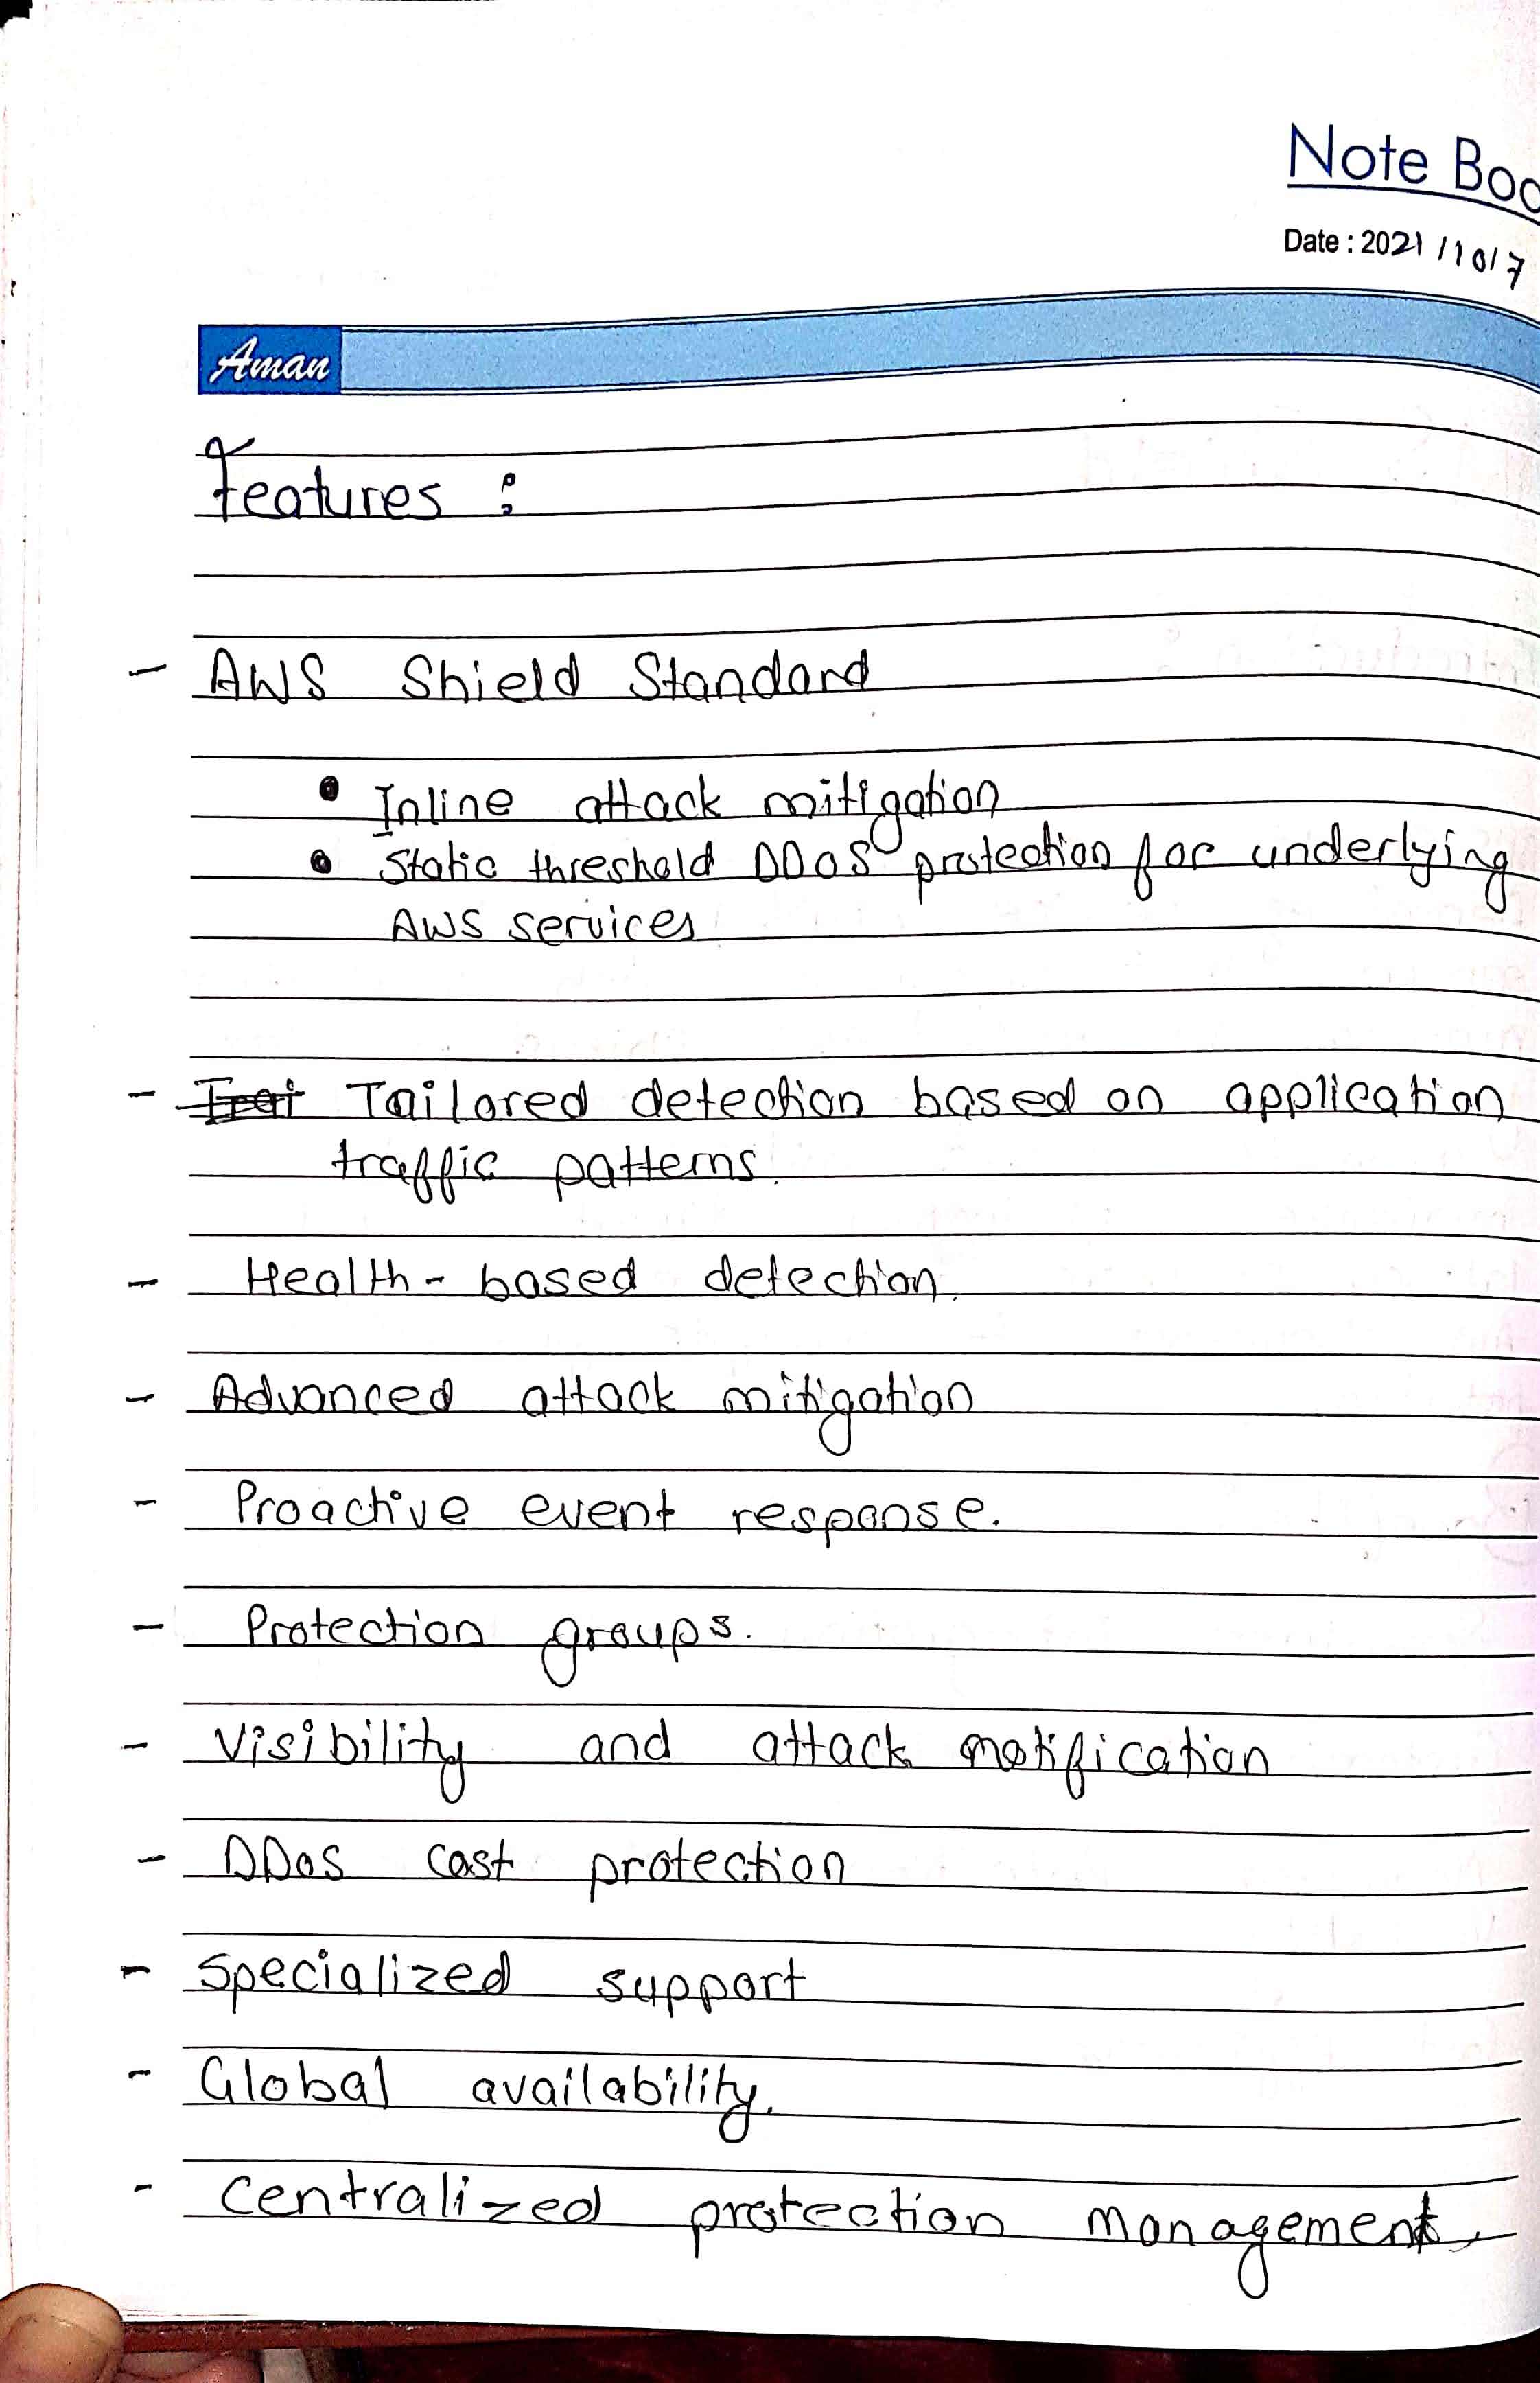 Note Boo
Date : 2021 / 10 / 7
Aman
Features :
- AWS Shield Standard
• Inline attack mitigation
• Static threshold DDoS protection for underlying
AWS services
- Tailored detection based on application
traffic patterns.
- Health-based detection.
- Advanced attack mitigation
- Proactive event response.
- Protection groups.
- Visibility and attack notification
- DDoS cost protection
- Specialized support
- Global availability.
- Centralized protection management.